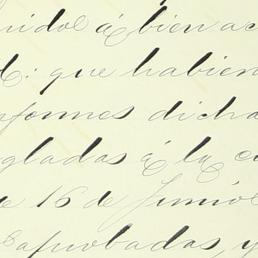 nidos á bien ac
d: que habien
formes dicha
gladas á la c
e 16 de Junio
aprobadas, y